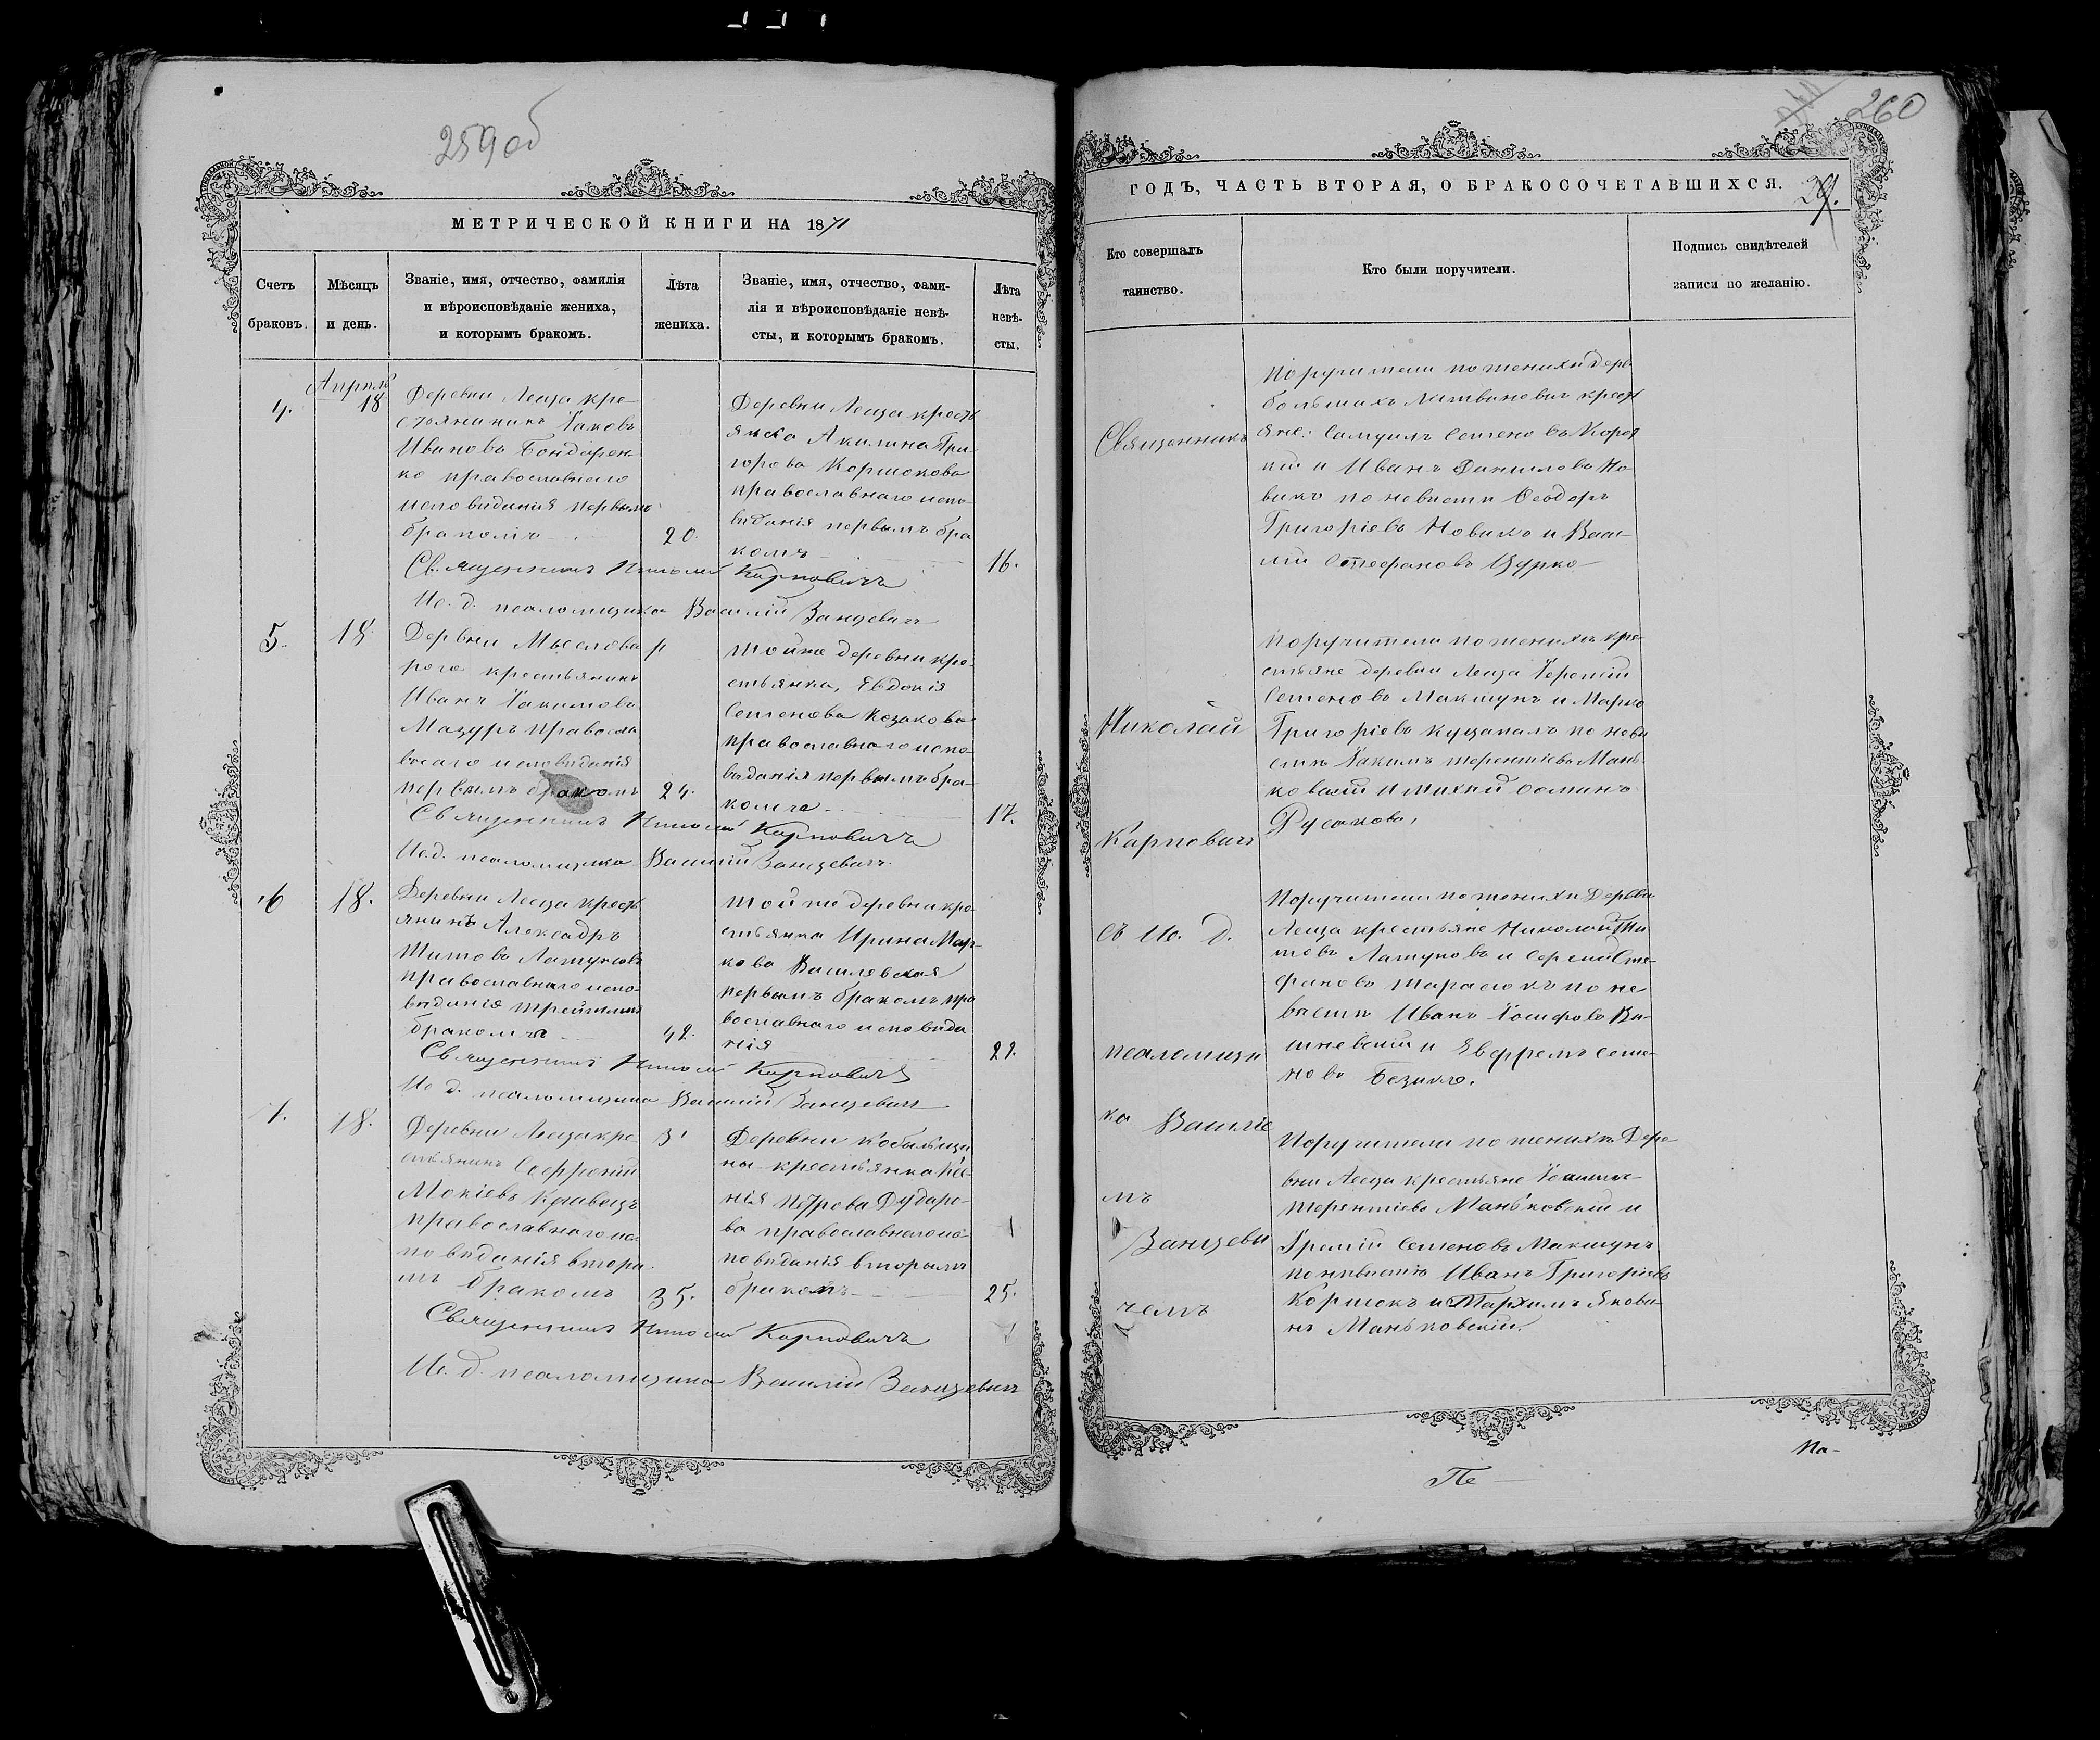 259 об
МЕТРИЧЕСКОЙ КНИГИ НА 1871
Счетъ браковъ.
Мѣсяцъ и день.
Званіе, имя, отчество, фамилія
и вѣроисповѣданіе жениха,
и которымъ бракомъ.
Лѣта жениха.
Званіе, имя, отчество, фами-
лія и вѣроисповѣданіе невѣ-
сты, и которымъ бракомъ.
Лѣта невѣ-
сты.
4.
Апрѣль
18
Деревни Леща кре-
стьянинъ Іаковъ
Ивановъ Бондарен-
ко православнаго
исповѣданія первымъ
бракомъ
20.
Деревни Леща кресть
янка Акилина Гри-
горова Коршокова
православнаго испо-
вѣданія первымъ бра
комъ
16.
Священникъ Николай Карповичъ
Ис. д. псаломщика Василій Занцевичъ
5.
18.
Деревни
крестьянинъ
Иванъ Іакимовъ
Мазуръ правосла
внаго исповѣданія
первымъ бракомъ
24.
Той же деревни кре-
стьянка, Евдокія
Семенова Козакова
православнаго испо-
вѣданія первымъ бра-
комъ
17.
Священникъ Николай Карповичъ
Ис. д. псаломщика Василій Занцевичъ
6
18.
Деревни Леща кресть
янинъ Александръ
Титовъ Латуковъ
православнаго испо-
вѣданія третьимъ
бракомъ
42.
Той же деревни кре-
стьянка Ирина Мар-
кова Василевская
первымъ бракомъ пра
вославнаго исповѣда
нія
22.
Священникъ Николай Карповичъ
Ис. д. псаломщика Василій Занцевичъ
7.
18.
Деревни Леща кре-
стьянинъ Софроній
Мокіевъ Кравецъ
православнаго ис-
повѣданія вторы
мъ бракомъ
35.
Деревни Кобыльщи
ны крестьянка Ксе-
нія Петрова Дударе-
ва православнаго ис-
повѣданія вторымъ
бракомъ
25.
Священникъ Николай Карповичъ
Ис. д. псаломщика Василій Занцевичъ
260
ГОДЪ, ЧАСТЬ ВТОРАЯ, О БРАКОСОЧЕТАВШИХСЯ.
29.
Кто совершалъ
таинство.
Кто были поручители.
Подпись свидѣтелей
записи по желанію.
Священникъ
Николай
Карповичъ
съ Ис. д.
псаломщи
ка Василіе
мъ
Занцеви
чемъ
Поручители по женихѣ дерв.
большихъ Литвиновичъ кресть
яне: Самуилъ Семеновъ
кій и Иванъ Даниловъ Но-
викъ по невѣстѣ Ѳеодоръ
Григоріевъ Новикъ и Васи-
лій Стефановъ Цурко
Поручители по женихѣ кре-
стьяне деревни Леща Іеремій
Семеновъ Макшунъ и Марко
Григоріевъ Куцапалъ по невѣ
стѣ Іакимъ Терентіевъ Мань-
ковскій и
Русаковъ,
Поручители по женихѣ Деревни
Леща крестьяне Николай Ти
товъ Латуковъ и Сергій Сте-
фановъ Тарасюкъ по не
вѣстѣ Иванъ Іосифовъ Ви-
шневскій и Евфремъ Семе-
новъ
Поручители по женихѣ Дере-
вни Леща крестьяне Іоакимъ
Терентіевъ Маньковскій и
Іремій Семеновъ Макшунъ
по невѣстѣ Иванъ Григоріевъ
Коршокъ и
Маньковскій.
Пе